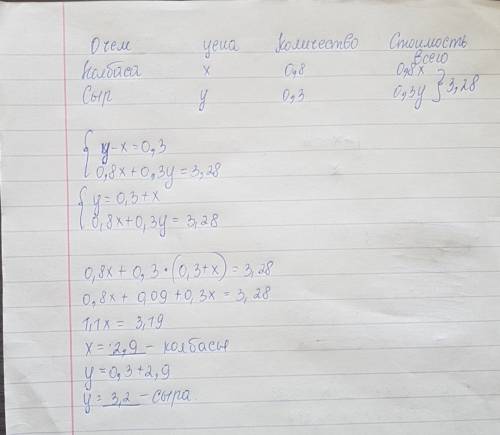 О чем цена количество Стоимость
всего
Колбаса x 0,8 0,8x
Сыр y 0,3 0,3y } 3,28
{ y-x=0,3
0,8x+0,3y=3,28
{ y=0,3+x
0,8x+0,3y=3,28
0,8x+0,3·(0,3+x)=3,28
0,8x+0,09+0,3x=3,28
1,1x=3,19
x=2,9 - колбасы
y=0,3+2,9
y=3,2 - сыра